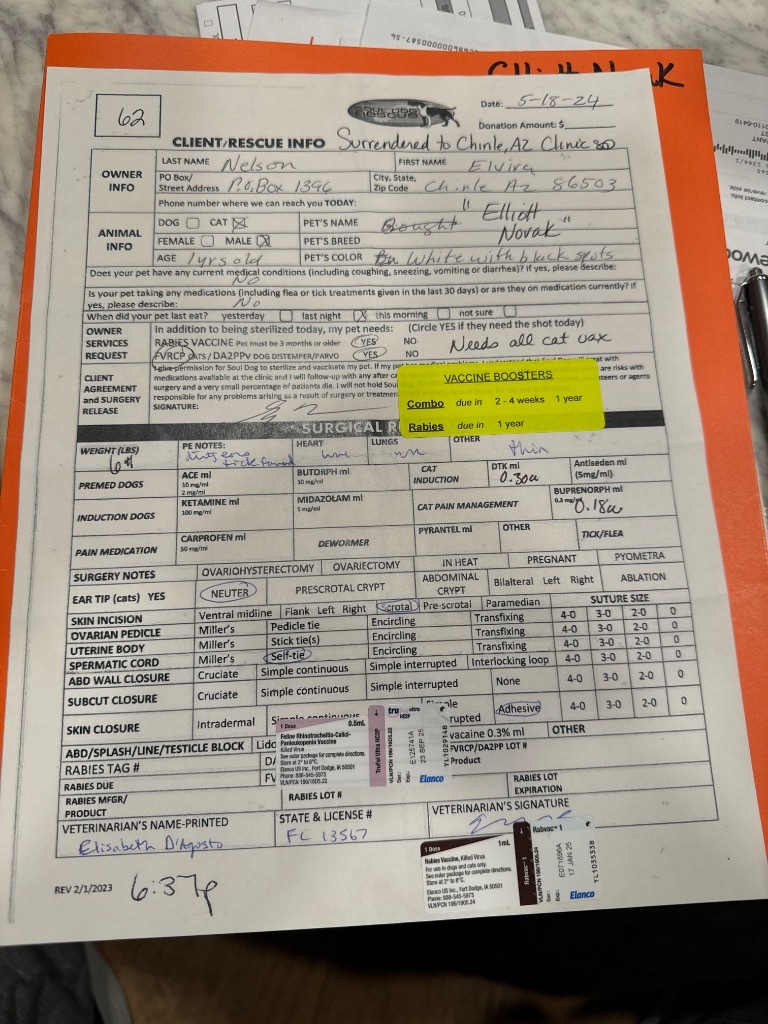 Elliott Novak
62
SOUL DOG RESCUE
Date: 5-18-24
Donation Amount: $
CLIENT/RESCUE INFO Surrendered to Chinle, AZ Clinic
OWNER INFO
LAST NAME Nelson FIRST NAME Elvira
PO Box/ Street Address P.O. Box 1396 City, State, Zip Code Chinle Az 86503
Phone number where we can reach you TODAY:
ANIMAL INFO
DOG CAT PET'S NAME Bought "Elliott Novak"
FEMALE MALE PET'S BREED
AGE 1yrs old PET'S COLOR White with black spots
Does your pet have any current medical conditions (including coughing, sneezing, vomiting or diarrhea)? If yes, please describe:
No
Is your pet taking any medications (including flea or tick treatments given in the last 30 days) or are they on medication currently? If
yes, please describe: No
When did your pet last eat? yesterday last night this morning not sure
OWNER SERVICES REQUEST
In addition to being sterilized today, my pet needs: (Circle YES if they need the shot today)
RABIES VACCINE Pet must be 3 months or older YES NO Needs all cat vax
FVRCP CATS / DA2PPV DOG DISTEMPER/PARVO YES NO
CLIENT AGREEMENT and SURGERY RELEASE
I give permission for Soul Dog to sterilize and vaccinate my pet. If my pet
medications available at the clinic and I will follow-up with any after ca are risks with
surgery and a very small percentage of patients die. I will not hold Soul teers or agents
responsible for any problems arising as a result of surgery or treatmen
SIGNATURE:
VACCINE BOOSTERS
Combo due in 2 - 4 weeks 1 year
Rabies due in 1 year
SURGICAL R
WEIGHT (LBS) 6# PE NOTES: HEART LUNGS OTHER thin
PREMED DOGS ACE ml 10 mg/ml 2 mg/ml BUTORPH ml 10 mg/ml CAT INDUCTION DTK ml 0.30 Antiseden ml (5mg/ml)
INDUCTION DOGS KETAMINE ml 100 mg/ml MIDAZOLAM ml 5 mg/ml CAT PAIN MANAGEMENT BUPRENORPH ml 0.3 mg/ml 0.18
PAIN MEDICATION CARPROFEN ml 50 mg/ml DEWORMER PYRANTEL ml OTHER TICK/FLEA
SURGERY NOTES OVARIOHYSTERECTOMY OVARIECTOMY IN HEAT PREGNANT PYOMETRA
EAR TIP (cats) YES NEUTER PRESCROTAL CRYPT ABDOMINAL CRYPT Bilateral Left Right ABLATION
SKIN INCISION Ventral midline Flank Left Right Scrotal Pre-scrotal Paramedian SUTURE SIZE
OVARIAN PEDICLE Miller's Pedicle tie Encircling Transfixing 4-0 3-0 2-0 0
UTERINE BODY Miller's Stick tie(s) Encircling Transfixing 4-0 3-0 2-0 0
SPERMATIC CORD Miller's Self-tie Encircling Transfixing 4-0 3-0 2-0 0
ABD WALL CLOSURE Cruciate Simple continuous Simple interrupted Interlocking loop 4-0 3-0 2-0 0
SUBCUT CLOSURE Cruciate Simple continuous Simple interrupted None 4-0 3-0 2-0 0
SKIN CLOSURE Intradermal Simple continuous rupted Adhesive 4-0 3-0 2-0 0
ABD/SPLASH/LINE/TESTICLE BLOCK Lido vacaine 0.3% ml OTHER
RABIES TAG # DA FVRCP/DA2PP LOT #
RABIES DUE FV Product
RABIES MFGR/ PRODUCT RABIES LOT # RABIES LOT EXPIRATION
1 Dose 0.5mL
Feline Rhinotracheitis-Calici-
Panleukopenia Vaccine
Killed Virus
See outer package for complete directions.
Store at 2° to 8°C.
Elanco US Inc., Fort Dodge, IA 50501
Phone: 888-545-5973
VLN/PCN 196/16D5.22
TruFel Ultra HC2P
E125741A
23 SEP 25
YL102914B
Elanco
VETERINARIAN'S NAME-PRINTED STATE & LICENSE # VETERINARIAN'S SIGNATURE
Elisabeth D'Agosto FL 13567
1 Dose 1mL
Rabies Vaccine, Killed Virus
For use in dogs and cats only.
See outer package for complete directions.
Store at 2° to 8°C.
Elanco US Inc., Fort Dodge, IA 50501
Phone: 888-545-5973
VLN/PCN 196/1905.24
Rabvac™ 1
E071896A
17 JAN 25
YL103533B
Elanco
REV 2/1/2023 6:37p